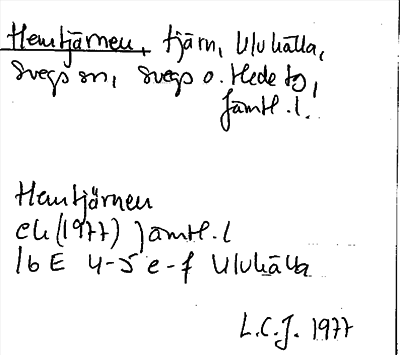 Hemtjärnen, tjärn, Ulvkälla,
Svegs sn, Svegs o. Hede tg,
Jämtl. l.
Hemtjärnen
ek (1977) Jämtl. l
16 E 4-5 e-f Ulvkälla
L.C.J. 1977